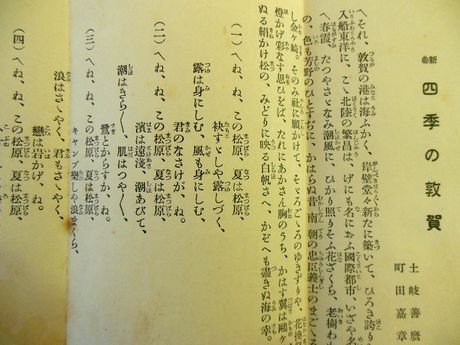 新曲 四季の敦賀
土岐善麿
町田嘉章
〽それ、敦賀の港は海ふかく、岸壁を新たに築いて、ひろき誇り
入船東洋に、こゝ北陸の繁昌は、げにも名におふ國際都市、いざや名
〽春霞、たつやさゞなみ潮風に、ひかり照りそふ花ざくら、老樹わ
の、色も芳野のひとすぢに、かはらぬ昔、南朝の忠臣義士のまごころ
し金ヶ崎、そのみ社に願かけて、そゞろごゝろのゆきずりや、花換
燈かげ彩なす思ひをば、たれにあかさん胸のうち、かはす翼は鷗ヶ
ぬる絹かけ松の、みどりに映る白帆さへ、かぞへも盡きぬ海の幸。
(一)〽ね、ね、この松原、夏は松原、
袂すゞしや露しづく、
露は身にしむ、風も身にしむ、
君のなさけが、ね。
(二)〽ね、ね、この松原、夏は松原、
濱は淺淺、潮あびて、
潮はきら〳〵、肌はつや〳〵、
鷺とからすか、ね。
(三)〽ね、ね、この松原、夏は松原、
キャンプ樂しや浪まくら、
浪はさゝやく、君もさゝやく、
戀は岩かげ、ね。
(四)〽ね、ね、この松原、夏は松原、